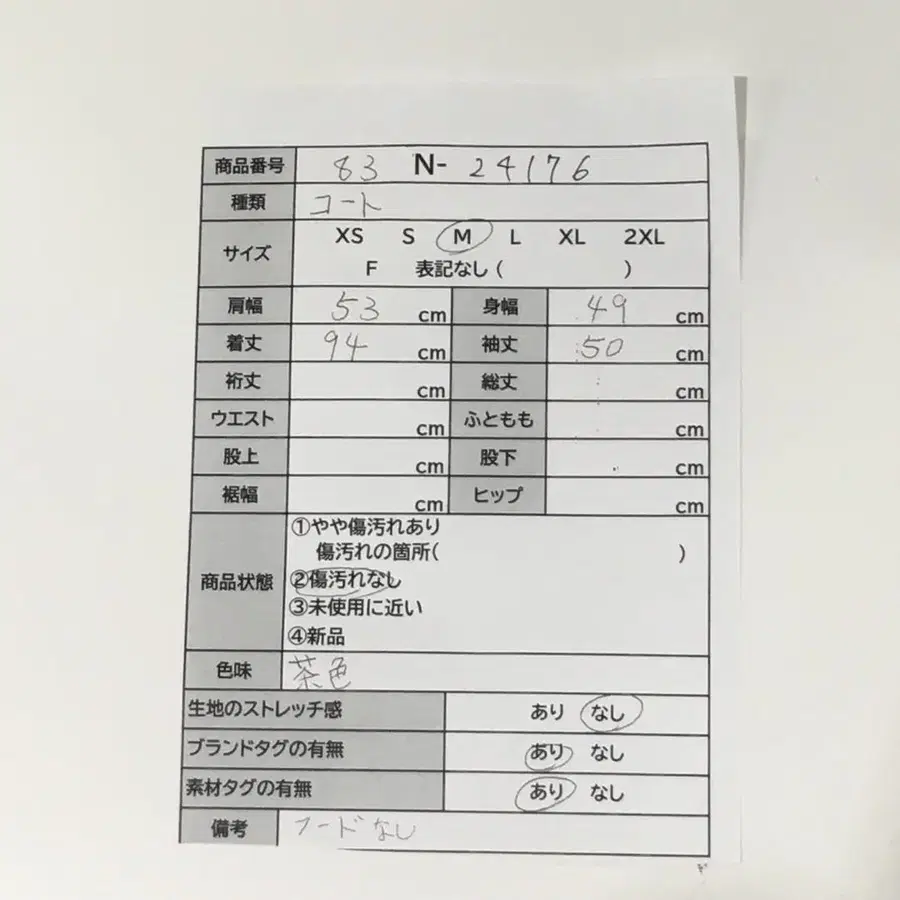 商品番号 83 N- 24176
種類 コート
サイズ XS S M L XL 2XL
F 表記なし( )
肩幅 53 cm 身幅 49 cm
着丈 94 cm 袖丈 50 cm
裄丈 cm 総丈 cm
ウエスト cm ふともも cm
股上 cm 股下 cm
裾幅 cm ヒップ cm
商品状態 ①やや傷汚れあり
傷汚れの箇所( )
②傷汚れなし
③未使用に近い
④新品
色味 茶色
生地のストレッチ感 あり なし
ブランドタグの有無 あり なし
素材タグの有無 あり なし
備考 フードなし